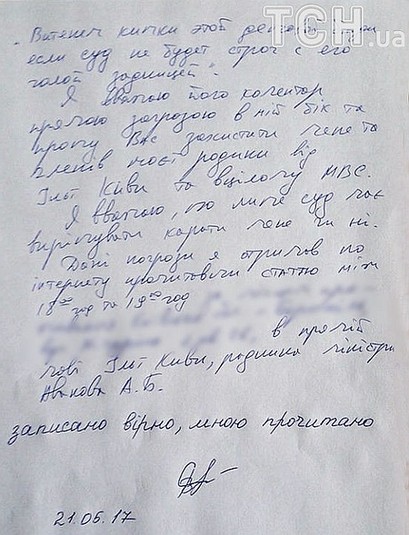 ТСН.ua
если суд не будет строг с его
голой задницей".
Я вважаю його коментар
прямою загрозою в мій бік та
прошу Вас захистити мене та
членів моєї родини від
Іллі Киви та вцілому МВС.
Я вважаю, що лише суд має
вирішувати карати мене чи ні.
Дані погрози я отримав по
інтернету прочитавши статтю між
18⁰⁰ год та 19⁰⁰ год
в прямій
мові Іллі Киви, радника міністра
Авакова А.Б.
записано вірно, мною прочитано
21.06.17